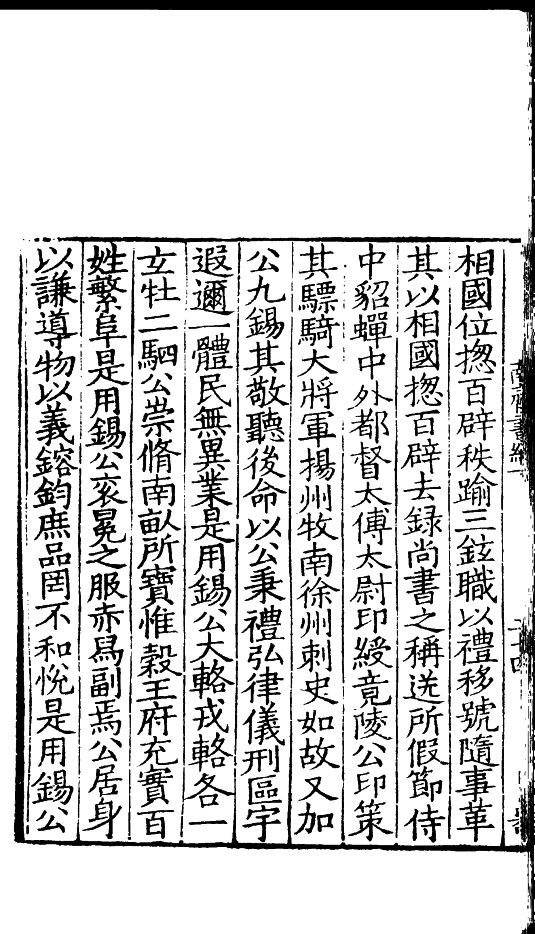 相國位揔百辟秩踰三鉉職以禮移號隨事革
其以相國揔百辟去録尚書之稱送所假節侍
中貂蟬中外都督太傅太尉印綬竟陵公印策
其驃騎大將軍揚州牧南徐州刺史如故又加
公九錫其敬聽後命以公秉禮弘律儀刑區宇
遐邇一體民無異業是用錫公大輅戎輅各一
玄牡二駟公崇脩南畝所寶惟穀王府充實百
姓繁阜是用錫公衮冕之服赤舄副焉公居身
以謙導物以義鎔鈞庶品罔不和悅是用錫公